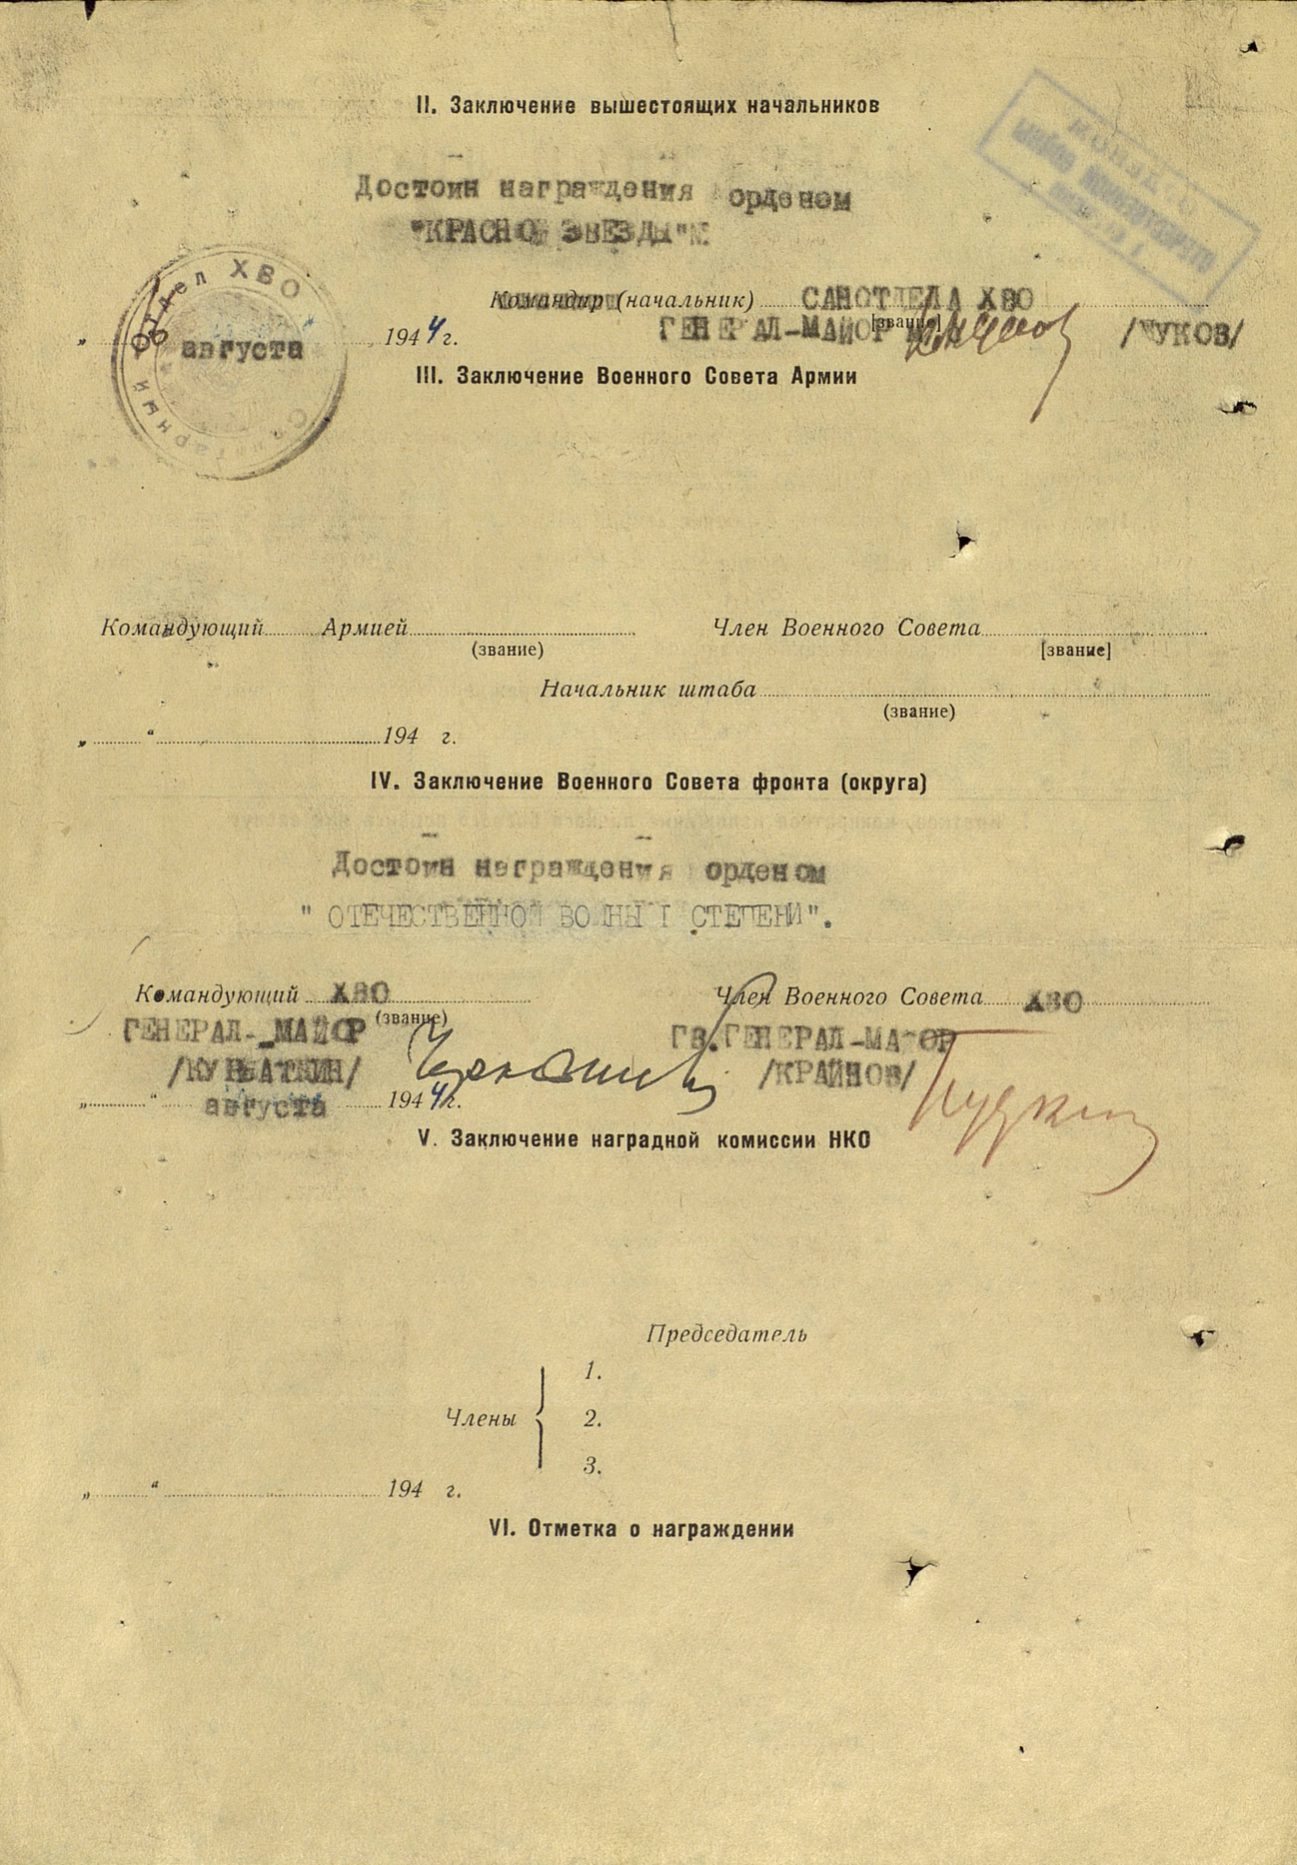 II. Заключение вышестоящих начальников
Достоин награждения орденом
"КРАСНОЙ ЗВЕЗДЫ"
Командир (начальник) САНОТДЕЛА ХВО
[звание]
„ августа 1944 г. ГЕНЕРАЛ-МАЙОР /ЧУКОВ/
отдел ХВО
Санитарный
III. Заключение Военного Совета Армии
Командующий Армией Член Военного Совета
(звание) [звание]
Начальник штаба
(звание)
„ “ 194 г.
IV. Заключение Военного Совета фронта (округа)
Достоин награждения орденом
" ОТЕЧЕСТВЕННОЙ ВОЙНЫ I СТЕПЕНИ".
Командующий ХВО Член Военного Совета ХВО
(звание)
ГЕНЕРАЛ-МАЙОР Гв.ГЕНЕРАЛ-МАЙОР
/КРАЙНОВ/
„ “ августа 1944 г.
V. Заключение наградной комиссии НКО
Председатель
1.
Члены 2.
3.
„ “ 194 г.
VI. Отметка о награждении